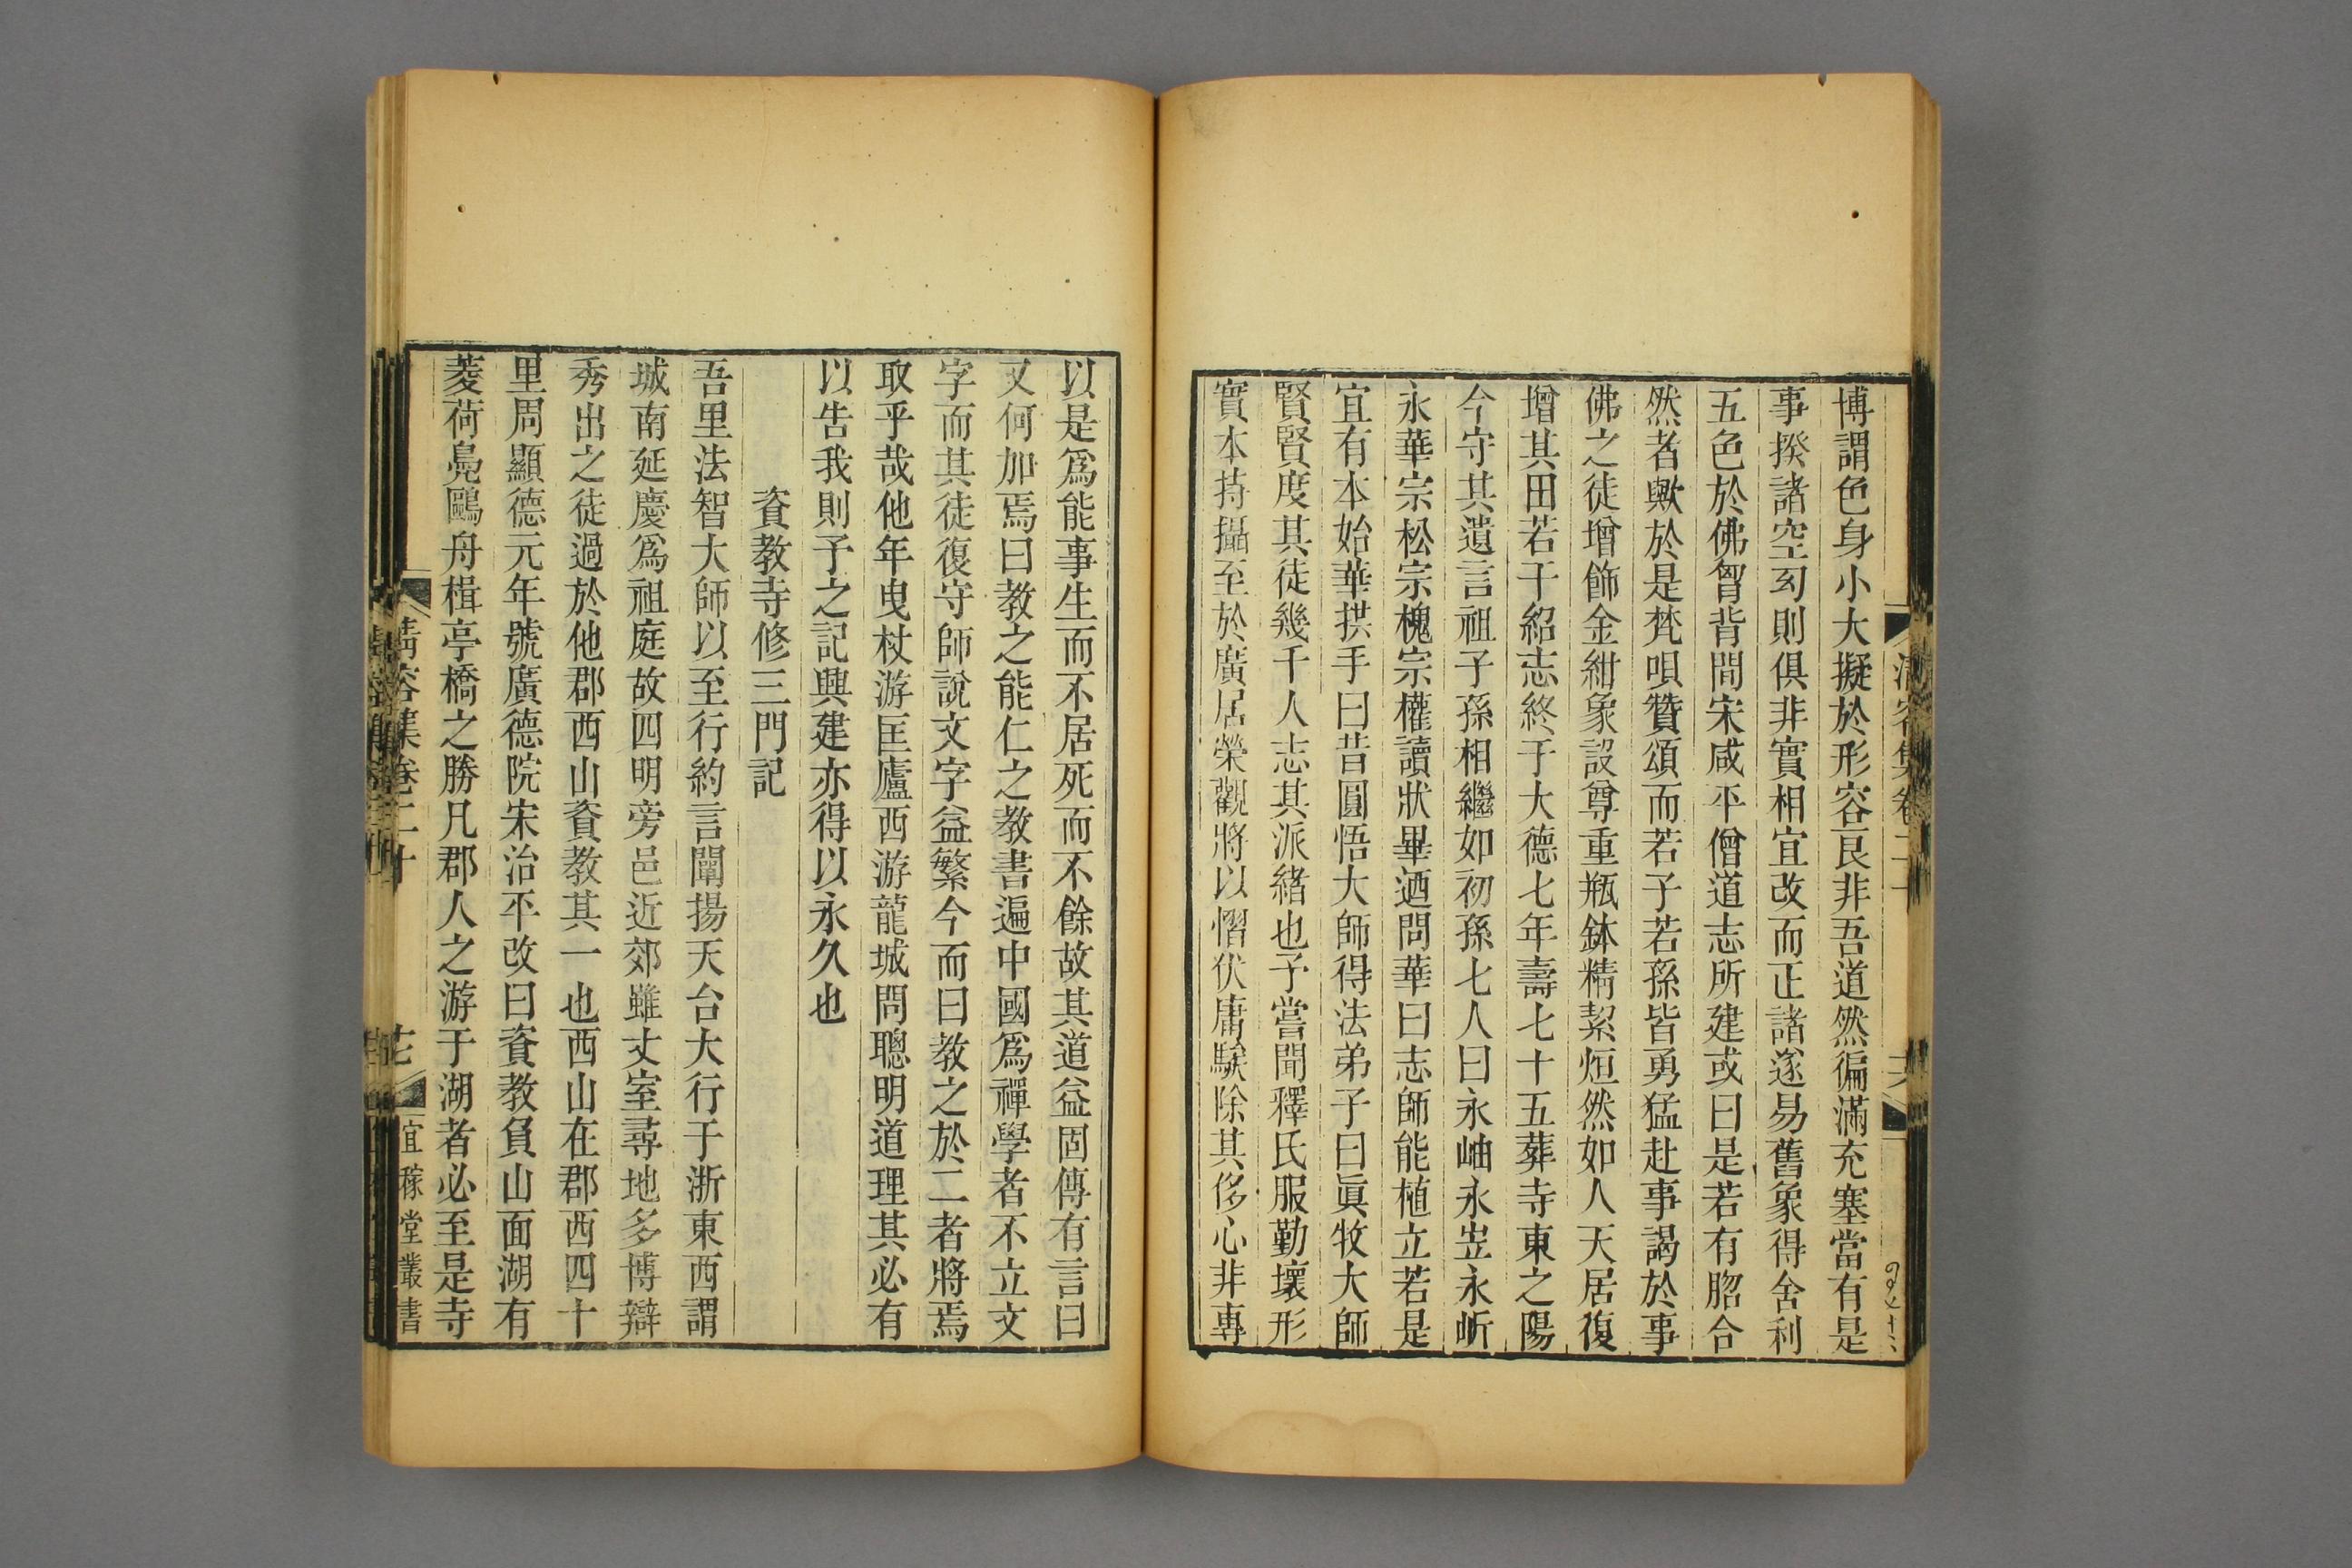 博謂色身小大擬於形容艮非吾道然徧滿充塞當有是
事揆諸空㓜則俱非實相宜改而正諸遂易舊象得舍利
五色於佛胷背間宋咸平僧道志所建或曰是若有䏚合
然者歟於是梵唄贊頌而若子若孫皆勇猛赴事謁於事
佛之徒增飾金紺象設尊重瓶鉢精絜烜然如人天居復
增其田若干紹志終于大德七年壽七十五葬寺東之陽
今守其遺言祖子孫相繼如初孫七人曰永岫永岦永㟁
永華宗松宗槐宗權讀狀畢迺問華曰志師能植立若是
宜有本始華拱手曰昔圓悟大師得法弟子曰眞牧大師
賢賢度其徒幾千人志其派緒也予嘗聞釋氏服勤壞形
實本持攝至於廣居榮觀將以慴伏庸騃除其侈心非專
清容集卷二十
六
以是爲能事生而不居死而不餘故其道益固傳有言曰
又何加焉曰教之能仁之教書遍中國爲禪學者不立文
字而其徒復守師說文字益繁今而曰教之於二者將焉
取乎哉他年曳杖游匡廬西游龍城問聰明道理其必有
以告我則予之記興建亦得以永久也
資教寺修三門記
吾里法智大師以至行約言闡揚天台大行于浙東西謂
城南延慶爲祖庭故四明旁邑近郊雖丈室尋地多博辯
秀出之徒過於他郡西山資教其一也西山在郡西四十
里周顯德元年號廣德院宋治平改曰資教負山面湖有
菱荷鳧鷗舟楫亭橋之勝凡郡人之游于湖者必至是寺
清容集卷二十
宜稼堂叢書